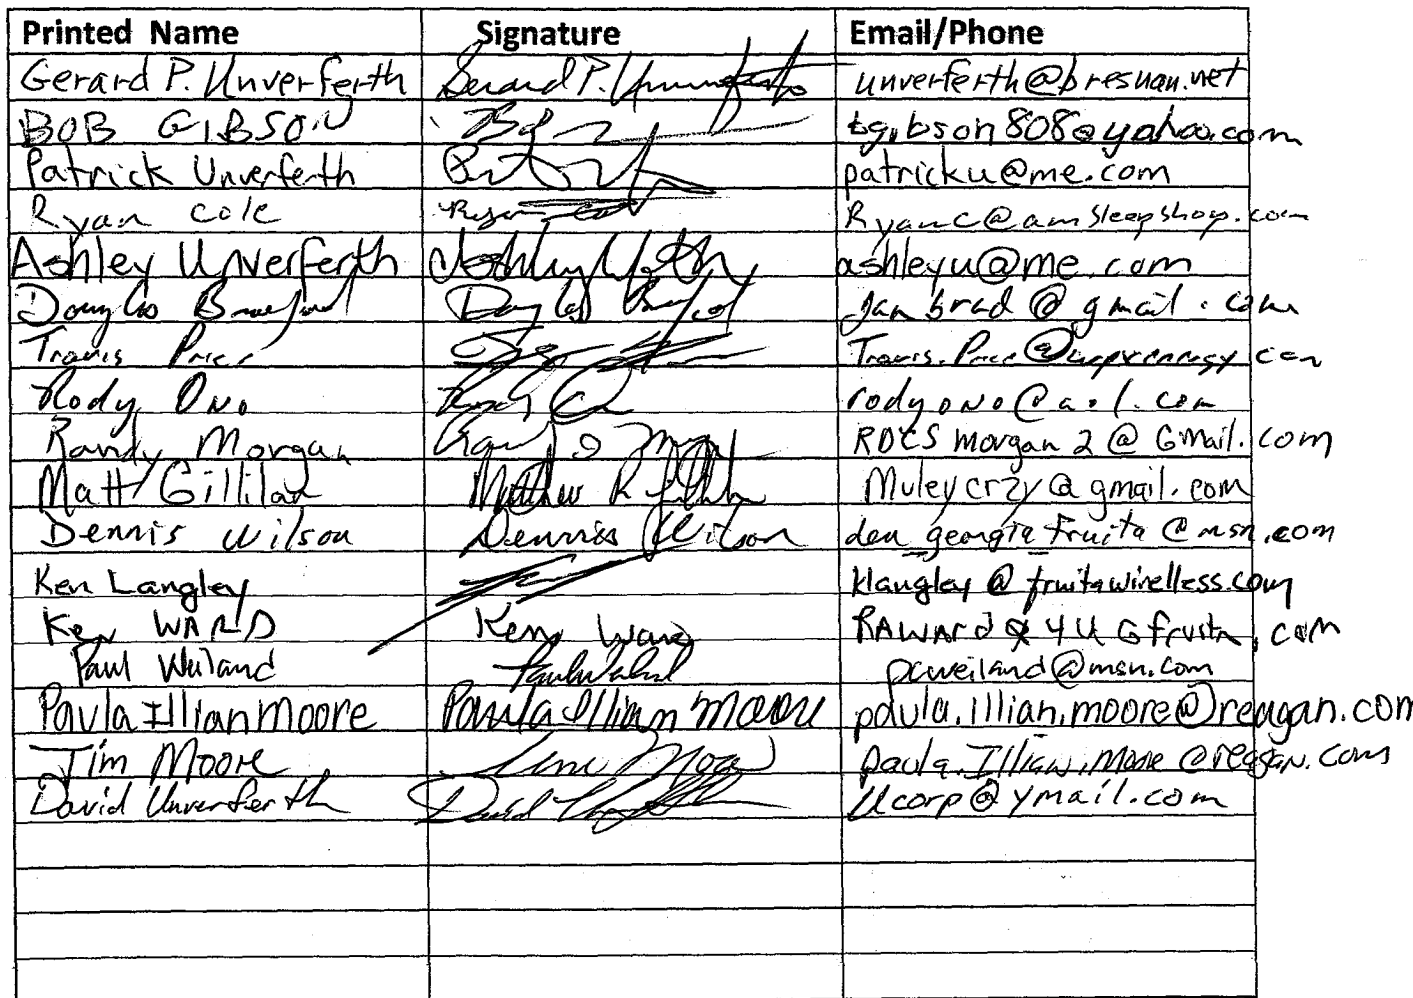 Printed Name Signature Email/Phone
Gerard P. Unverferth Gerard P. Unverferth unverferth@bresnan.net
BOB GIBSON bgibson808@yahoo.com
Patrick Unverferth patricku@me.com
Ryan Cole Ryan Cole Ryanc@amsleepshop.com
Ashley Unverferth ashleyu@me.com
Douglas Bradford janbrad@gmail.com
Travis Price Travis.Price@wpxenergy.com
Rody Ono rodyono@aol.com
Randy Morgan RDCSmorgan2@Gmail.com
Matt Gillilan Matthew R Muleycrzy@gmail.com
Dennis Wilson Dennis Wilson den_georgia_fruita@msn.com
Ken Langley klangley@fruitawirelless.com
Ken WARD Ken Ward
Paul Weiland pcweiland@msn.com
Paula Illian Moore Paula Illian Moore paula.illian.moore@reagan.com
Tim Moore Tim Moore paula.Illian.Moore@reagan.com
David Unverferth David Ucorp@ymail.com